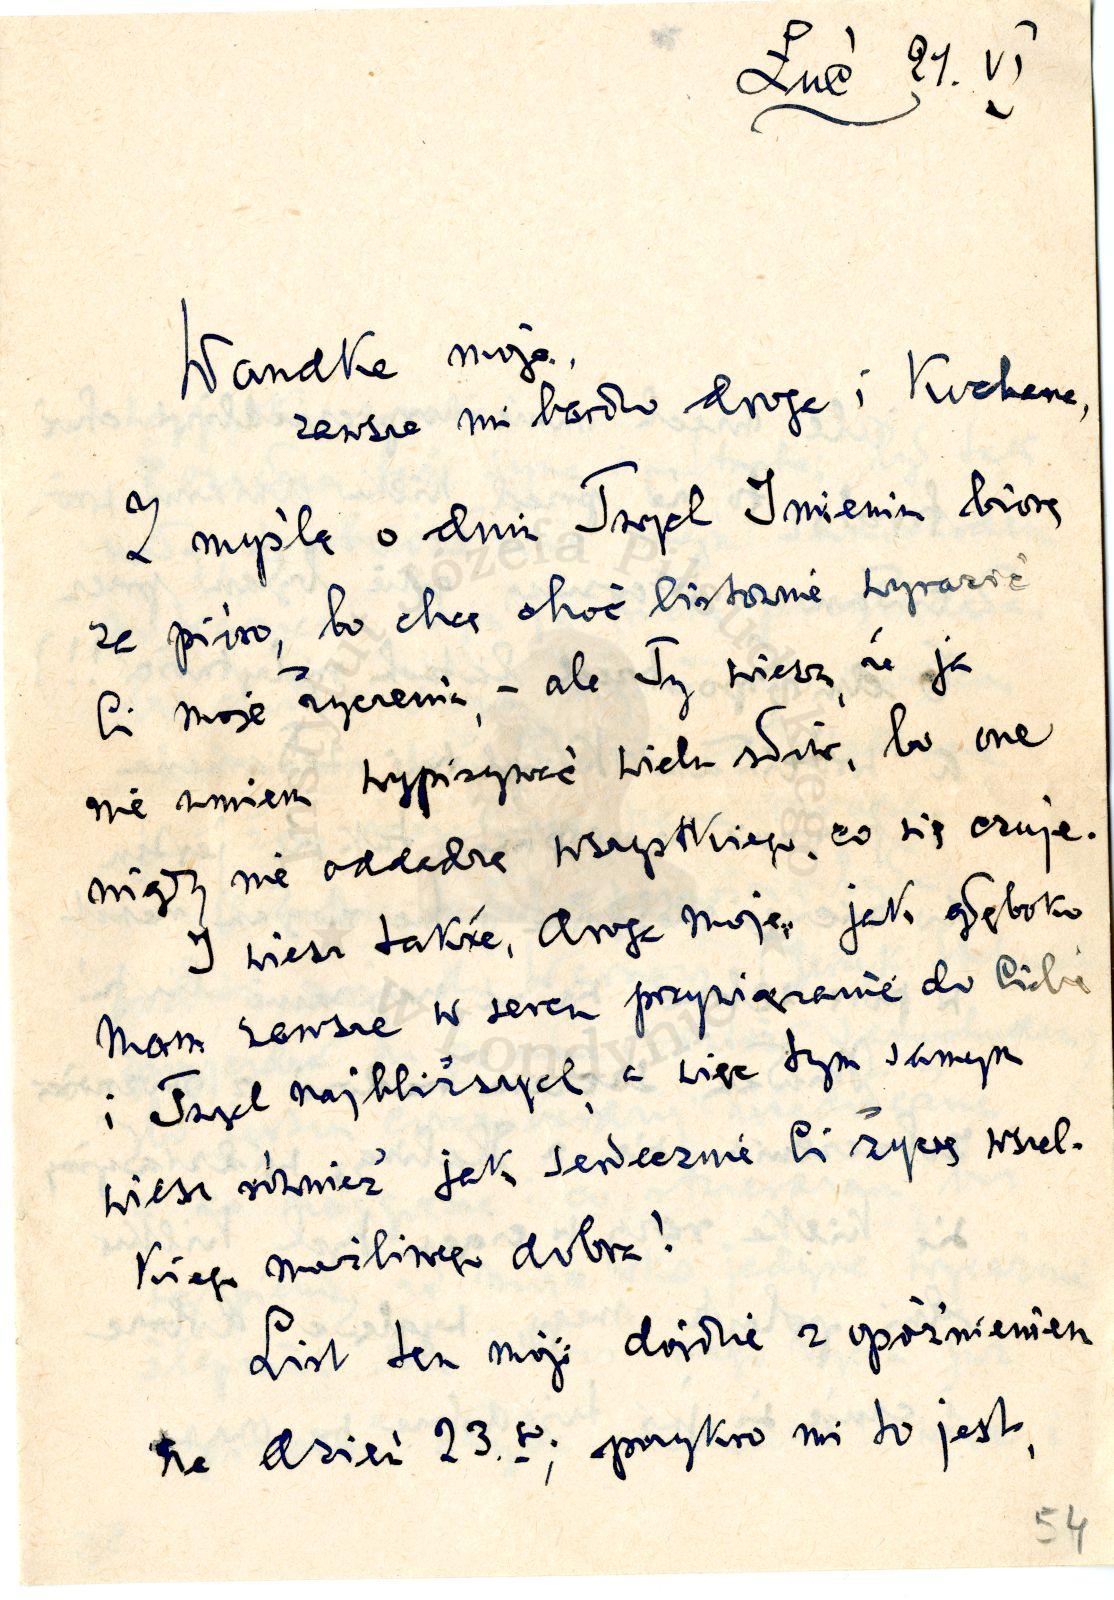 21. VI
Wandko moja,
zawsze mi bardzo droga i Kochana,
Z myślą o dniu Twych Imienin biorę
za pióro, bo chcę choć listownie wyrazić
Ci moje życzenia, – ale Ty wiesz, że ja
nie umiem wypisywać wielu słów, bo one
nigdy nie oddadzą wszystkiego, co się czuje.
I wiesz także, droga moja, jak głęboko
mam zawsze w sercu przywiązanie do Ciebie
i Twych najbliższych, a więc tym samym
wiesz również jak serdecznie Ci życzę wszel-
kiego możliwego dobra!
List ten mój dojdzie z opóźnieniem
na dzień 23. go; przykro mi to jest,
54
Instytut Józefa Piłsudskiego
w Londynie